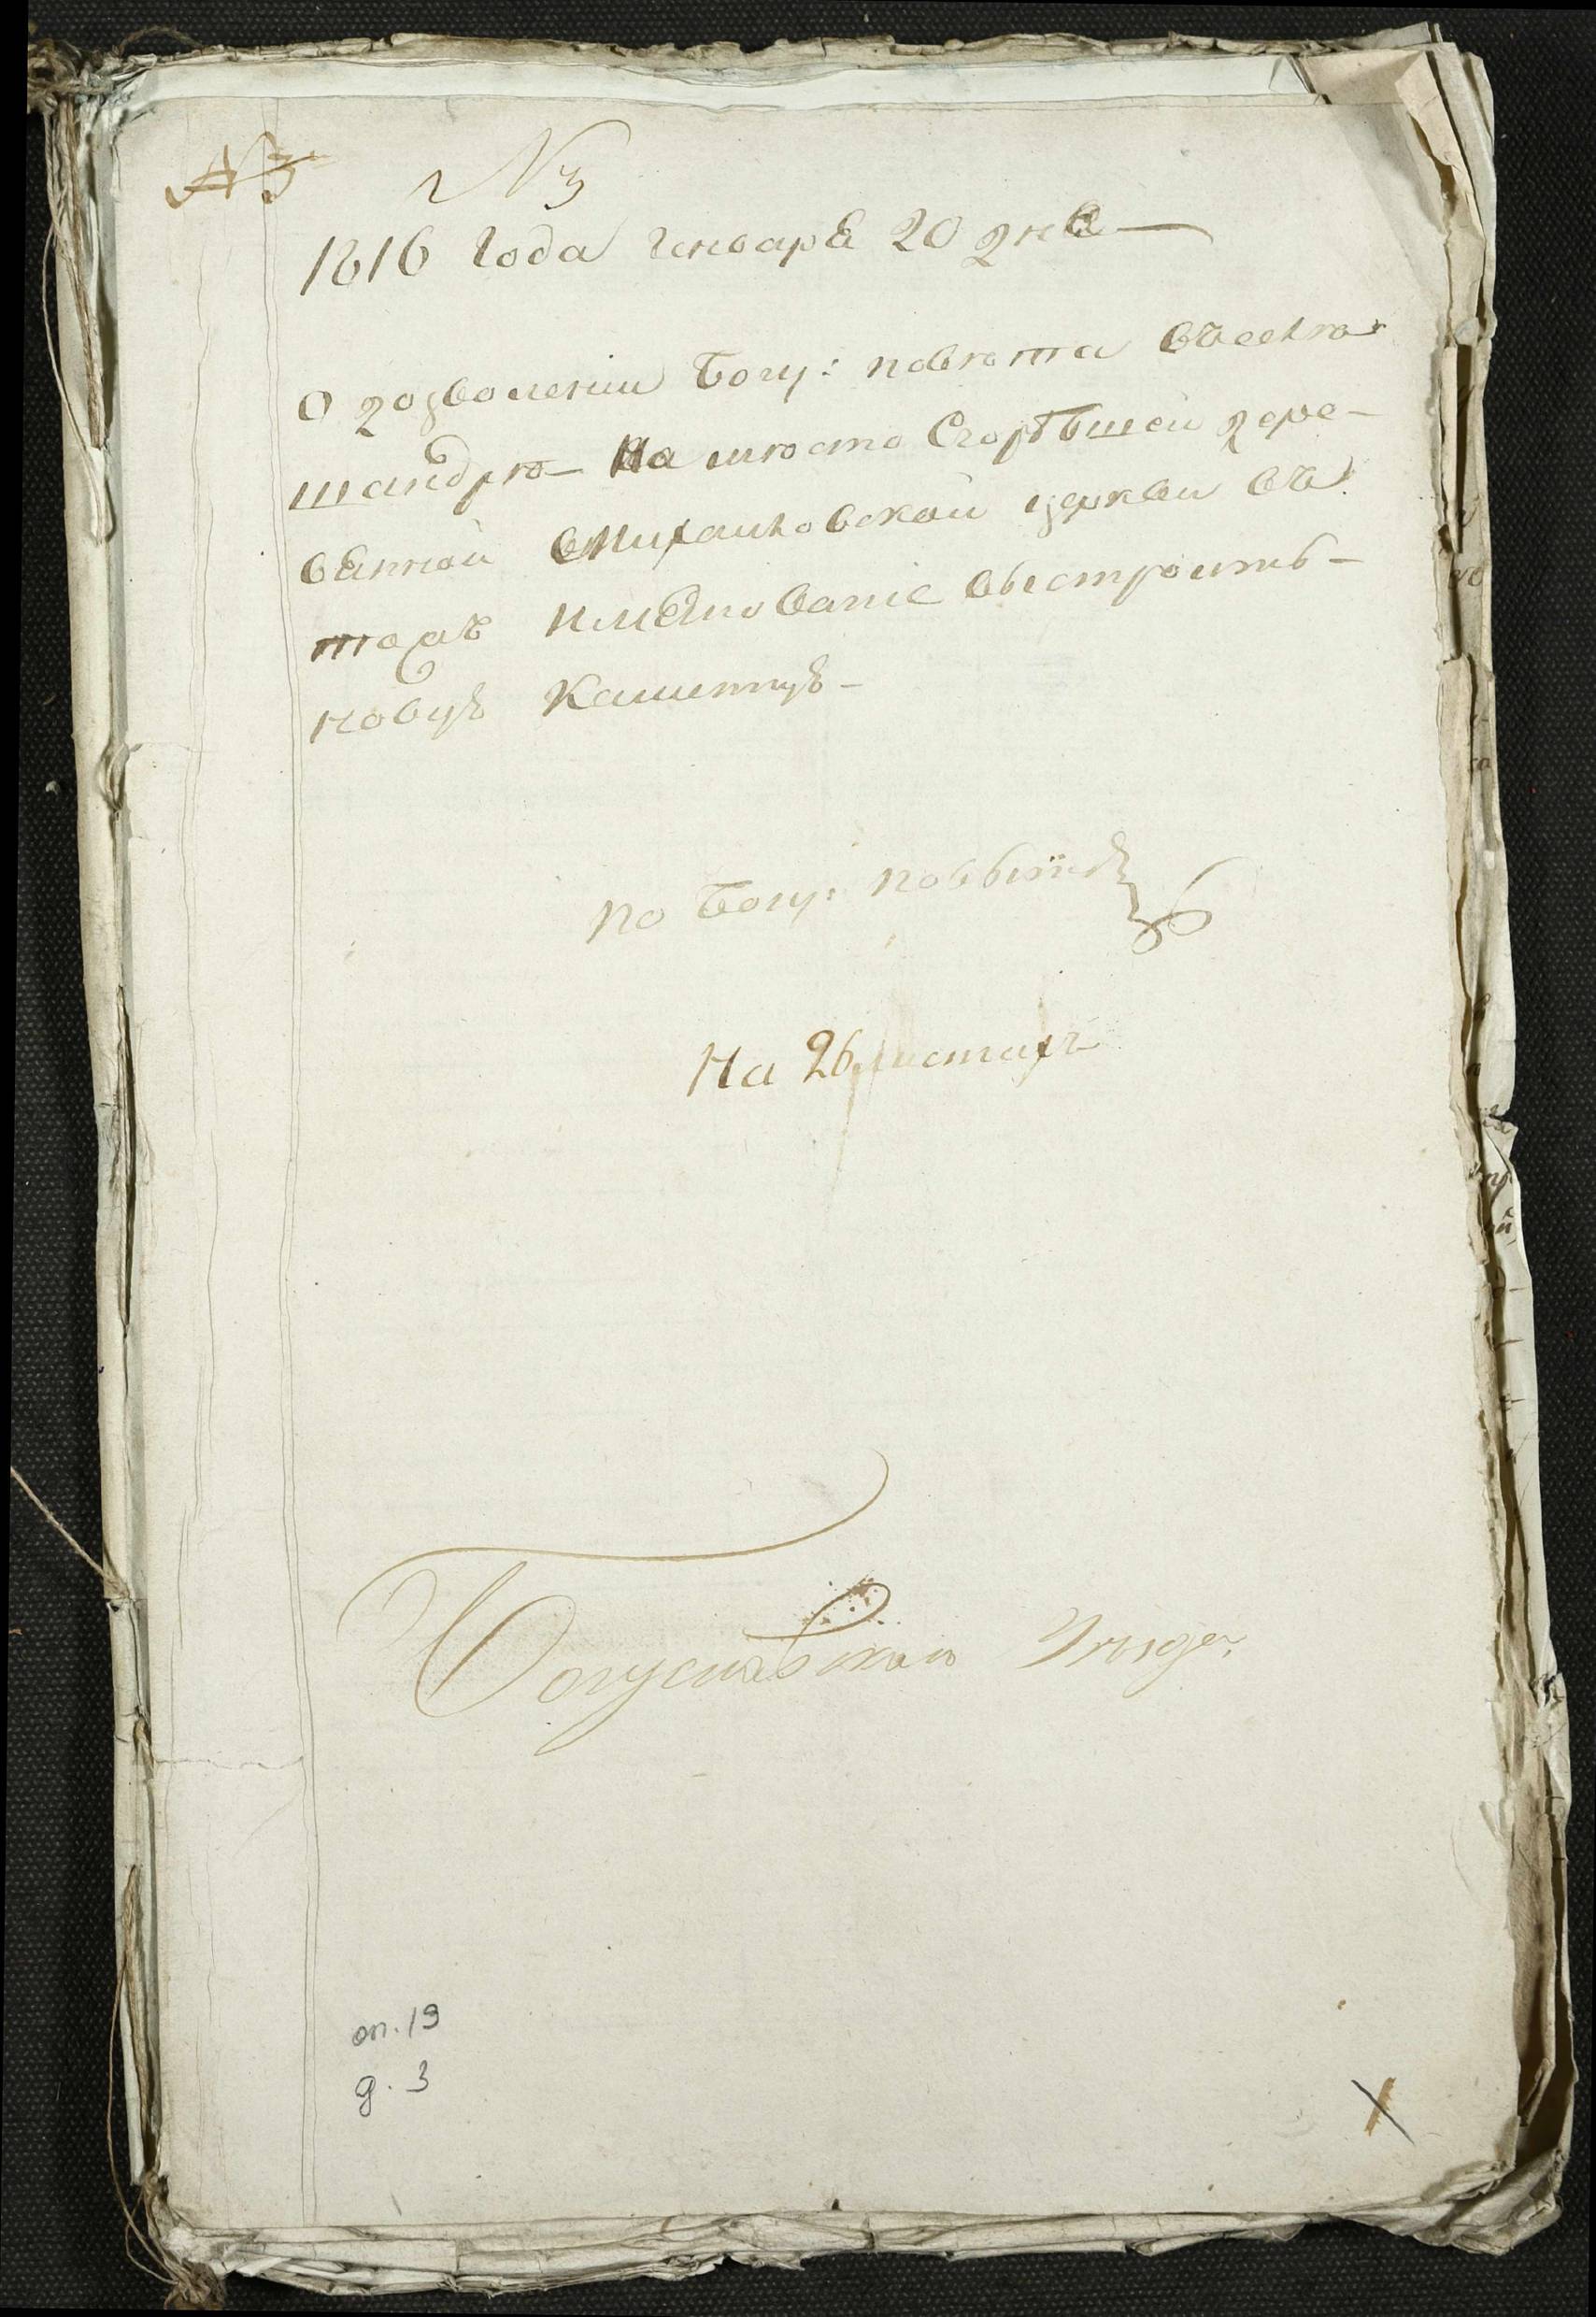 №3 №3
1816 Года Генваря 20 дня —
О дозволении Богу: повѣта въ селѣ
Шандрѣ — На мѣсто Сгорѣвшей дере-
вянной Михайловской церкви въ
тожъ имянованіе выстроить —
новую Каменную —
По Богу:
На 26 листахъ
Богуславскаго
оп. 19
д. 3